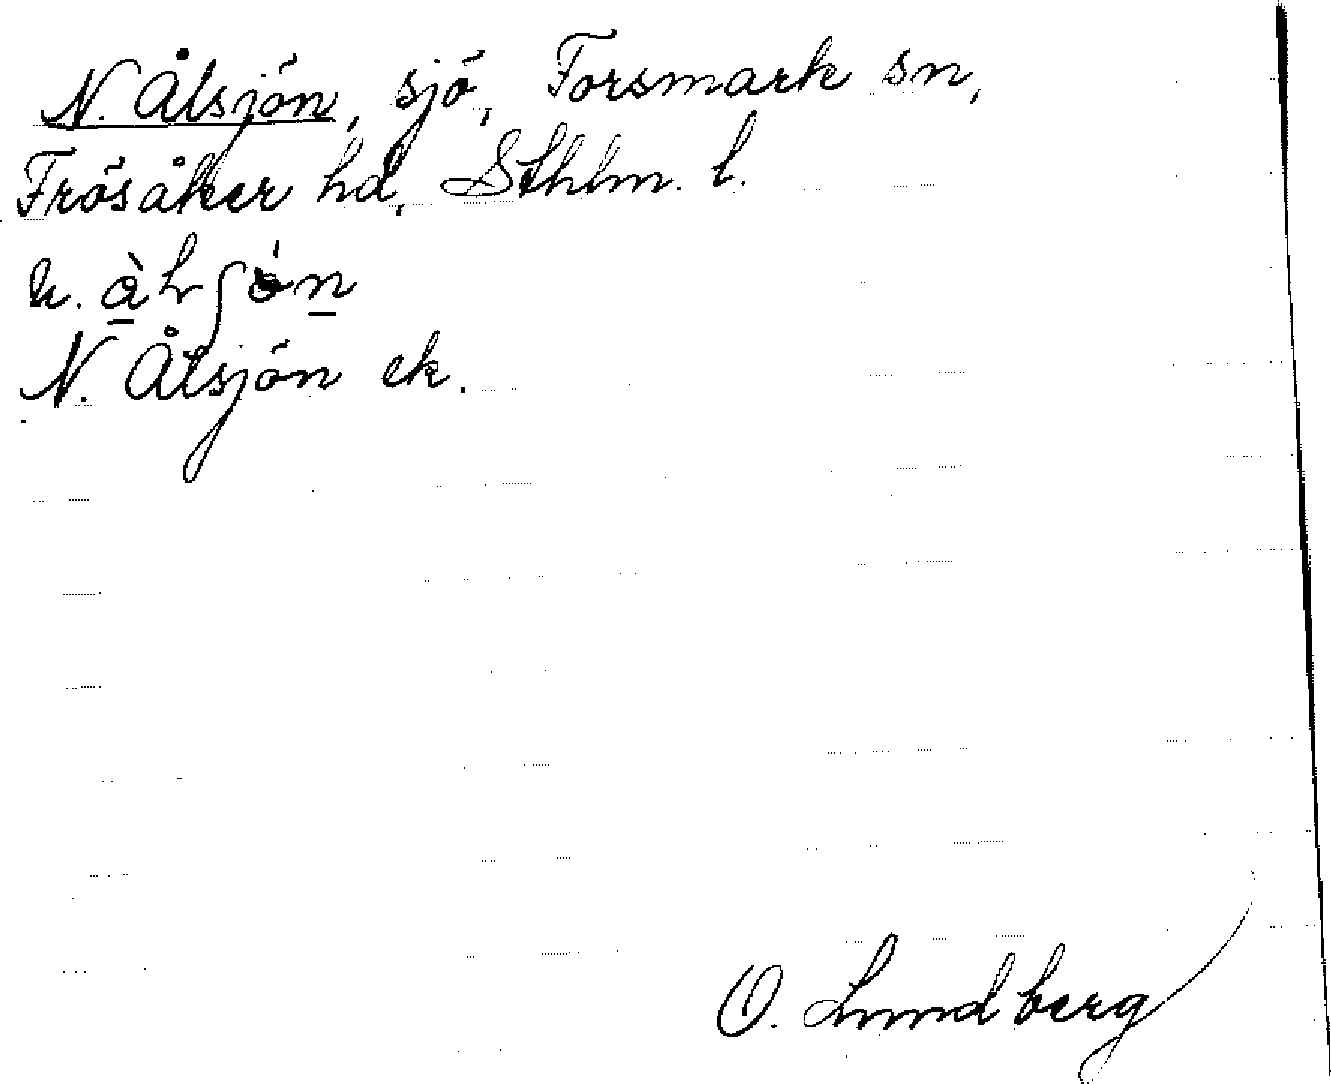 N. Ålsjön, sjö, Forsmark sn,
Frösåker hd, Sthlm. l.
u.
N. Ålsjön ek.
O. Lundberg